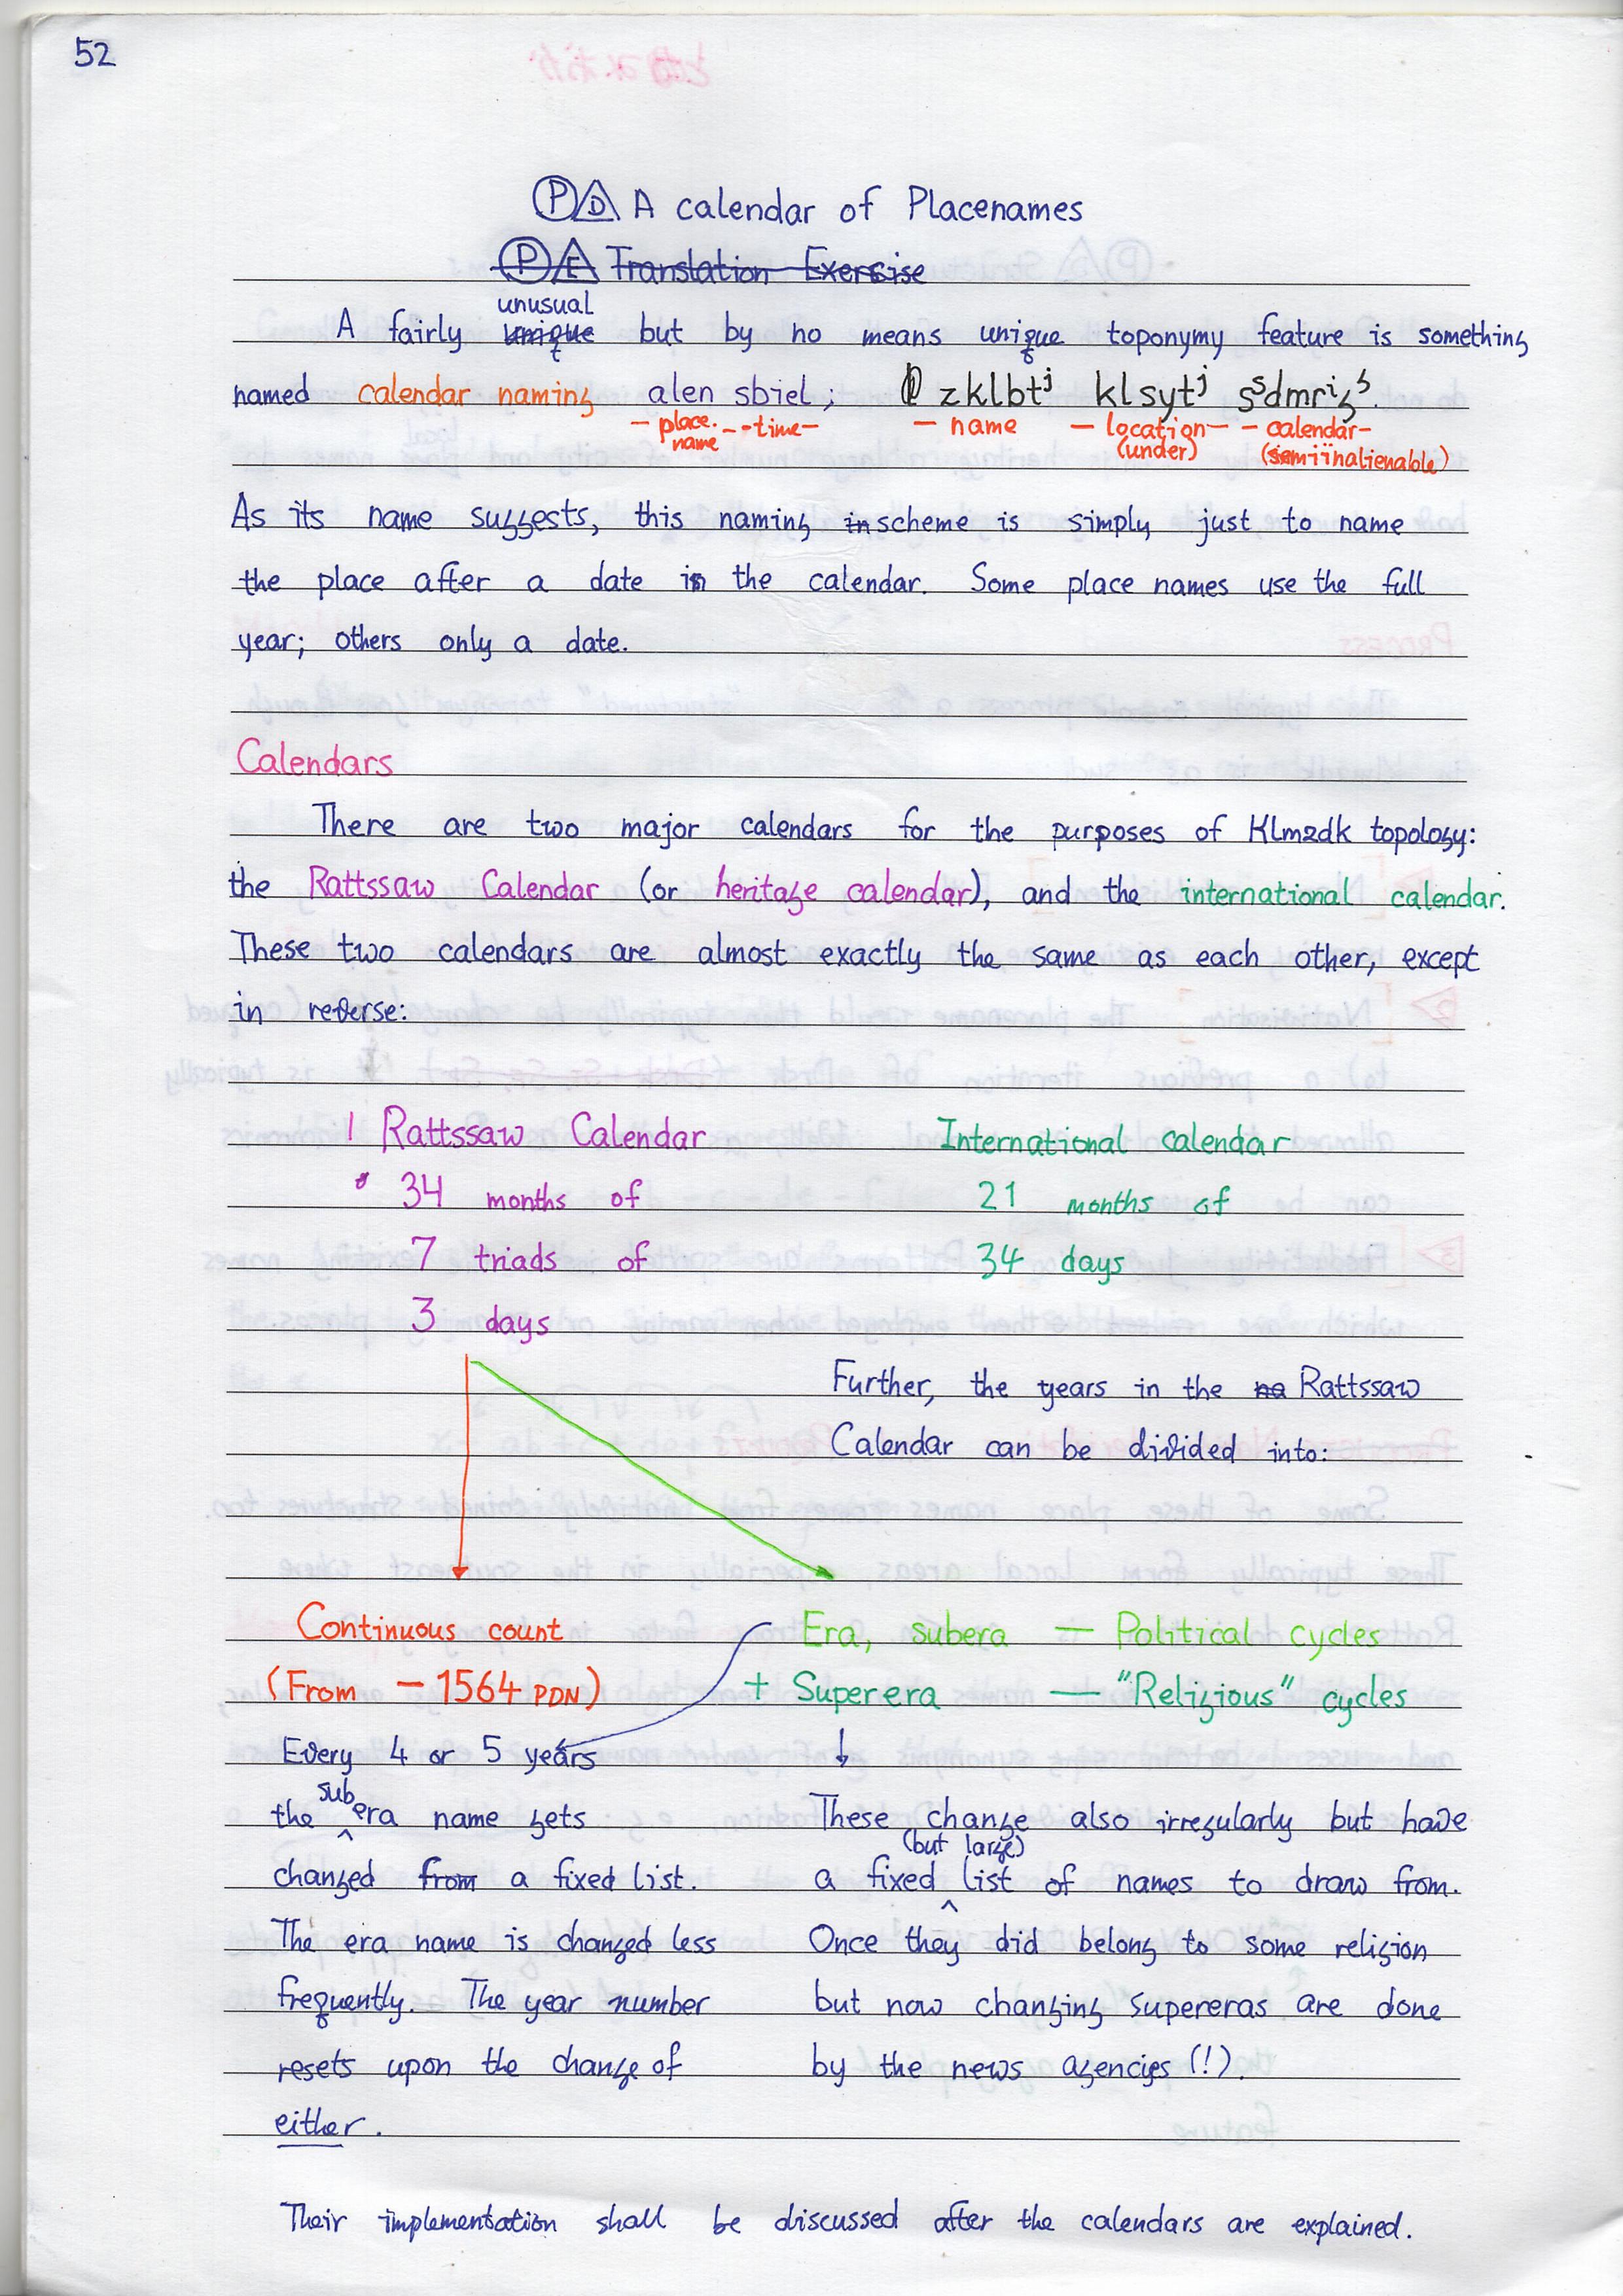 52
P D A calendar of Placenames
P E Translation Exersise
unusual
A fairly unique but by no means unique toponymy feature is something
named calendar naming alen sbiel; zklbtʲ klsytʲ
place name - time - name - location (under) - calendar - (semiinalienable)
As its name suggests, this naming in scheme is simply just to name
the place after a date in the calendar. Some place names use the full
year; others only a date.
Calendars
There are two major calendars for the purposes of Klmzdk topology:
the Rattssaw Calendar (or heritage calendar), and the international calendar.
These two calendars are almost exactly the same as each other, except
in reverse:
! Rattssaw Calendar
34 months of
7 triads of
3 days
International calendar
21 months of
34 days
Further, the years in the na Rattssaw
Calendar can be divided into:
Continuous count
(From - 1564 PDN)
Era, subera — Political cycles
+ Superera — "Religious" cycles
Every 4 or 5 years
the sub^era name gets
changed from a fixed list.
The era name is changed less
frequently. The year number
resets upon the change of
either.
↓
These change also irregularly but have
(but large)
a fixed ^ list of names to draw from.
Once they did belong to some religion
but now changing supereras are done
by the news agencies (!).
Their implementation shall be discussed after the calendars are explained.